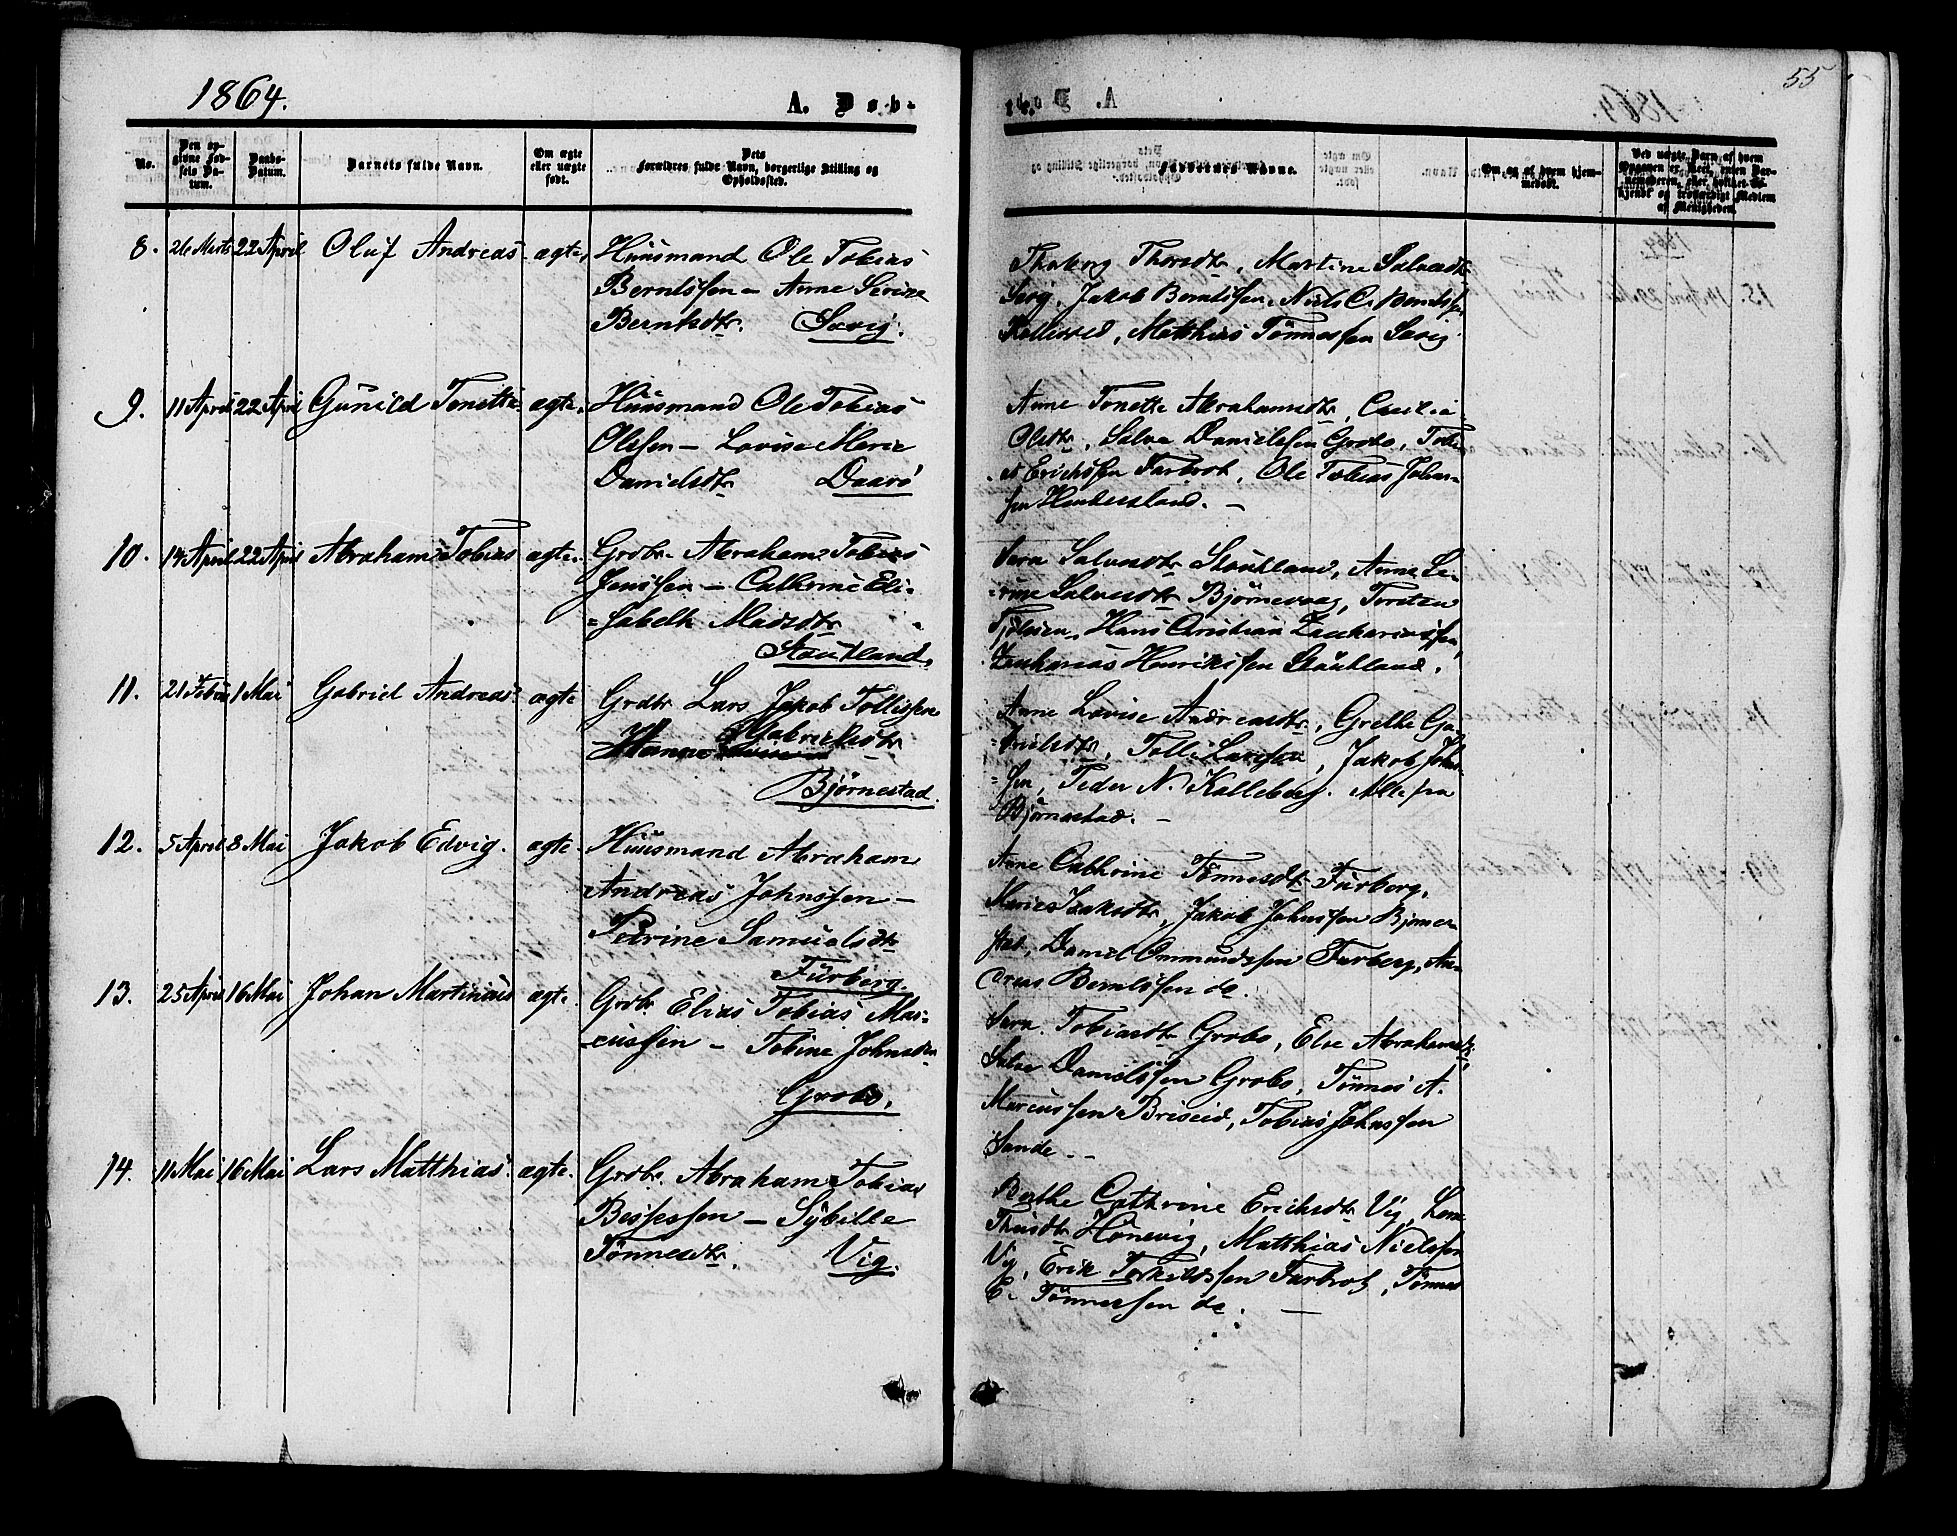 1864.
A. Døb-
55
No.
Den op-
givne Fød-
sels Da-
tum.
Daabs-
Datum.
Barnets fulde Navn.
Om ægte
eller uægte
født.
Dets
Forældres fulde Navn, borgerlige Stilling og
Opholdssted.
Faddernes Navne.
Om og af hvem hjem-
medøbt.
Ved uægte Barn af hvem
8. 26 Marts 22 April Oluf Andreas ægte
Huusmand Ole Tobias
Berntssen - Anne Serine
Berntsdtr. Sævig.
Thorsdtr, Martine
Sævig, Jakob Berntssen, Niels C. Berntss
Matthias Tønnessen Sævig
9. 11 April 22 April Gunild Tonette ægte.
Huusmand Ole Tobias
Olssen - Lovise Marie
Danielsdtr Daarø
Anne Tonette Abrahamsdtr, Cecilie
Olsdtr, Salve Danielssen Grobo, Tobi-
as Erichssen Farbrot, Ole Tobias Johan-
sen -
10. 14 April 22 April Abraham Tobias ægte.
Grdbr. Abraham Tobias
Jenssen - Cathrine Eli-
=sabeth Madsdtr
Stoutland.
Sara Salvesdtr Stoutland, Anne Se-
=rine Salvesdtr Bjørnevaag, Torsten
Hans Christian Zacchariassen,
Zacharias Henrikssen Stoutland.
11. 21 Febr 1 Mai Gabriel Andreas ægte
Grdbr Lars Jakob Tollissen
Gabrielsdtr
Bjørnestad.
Anne Lovise Andreasdtr, Grethe Ga-
=brielsdtr, Tolli Larssen, Jakob Johns-
=sen, Peder N. Kalleberg. Alle fra
Bjørnestad. -
12. 5 April 8 Mai Jakob Edvig. ægte.
Huusmand Abraham
Andreas Johnssen -
Petrine Samuelsdtr
Furberg.
Anne Cathrine Tønnesdtr Furberg,
Marie Isaksdtr, Jakob Johnssen Bjørne-
stad, Daniel Ommundssen Furberg, An-
dreas Berntssen do.
13. 25 April 16 Mai Johan Martinius ægte.
Grdbr. Elias Tobias Mar-
cussen - Tobine Johnsdtr
Grobo.
Sara Tobiasdtr Grobo, Else Abrahamsdtr,
Salve Danielssen Grobo, Tønnes A.
Marcussen Briseid, Tobias Johnssen
Sande. -
14. 11 Mai 16 Mai Lars Matthias. ægte.
Grdbr. Abraham Tobias
Bessessen - Sybille
Tønnesdtr. Vig.
Berthe Cathrine Erichsdtr Vig, Lene
Hønevig, Matthias Nielssen
Vig, Erik Terkeldssen Farbrot, Tønnes
E. Tønnessen do. -